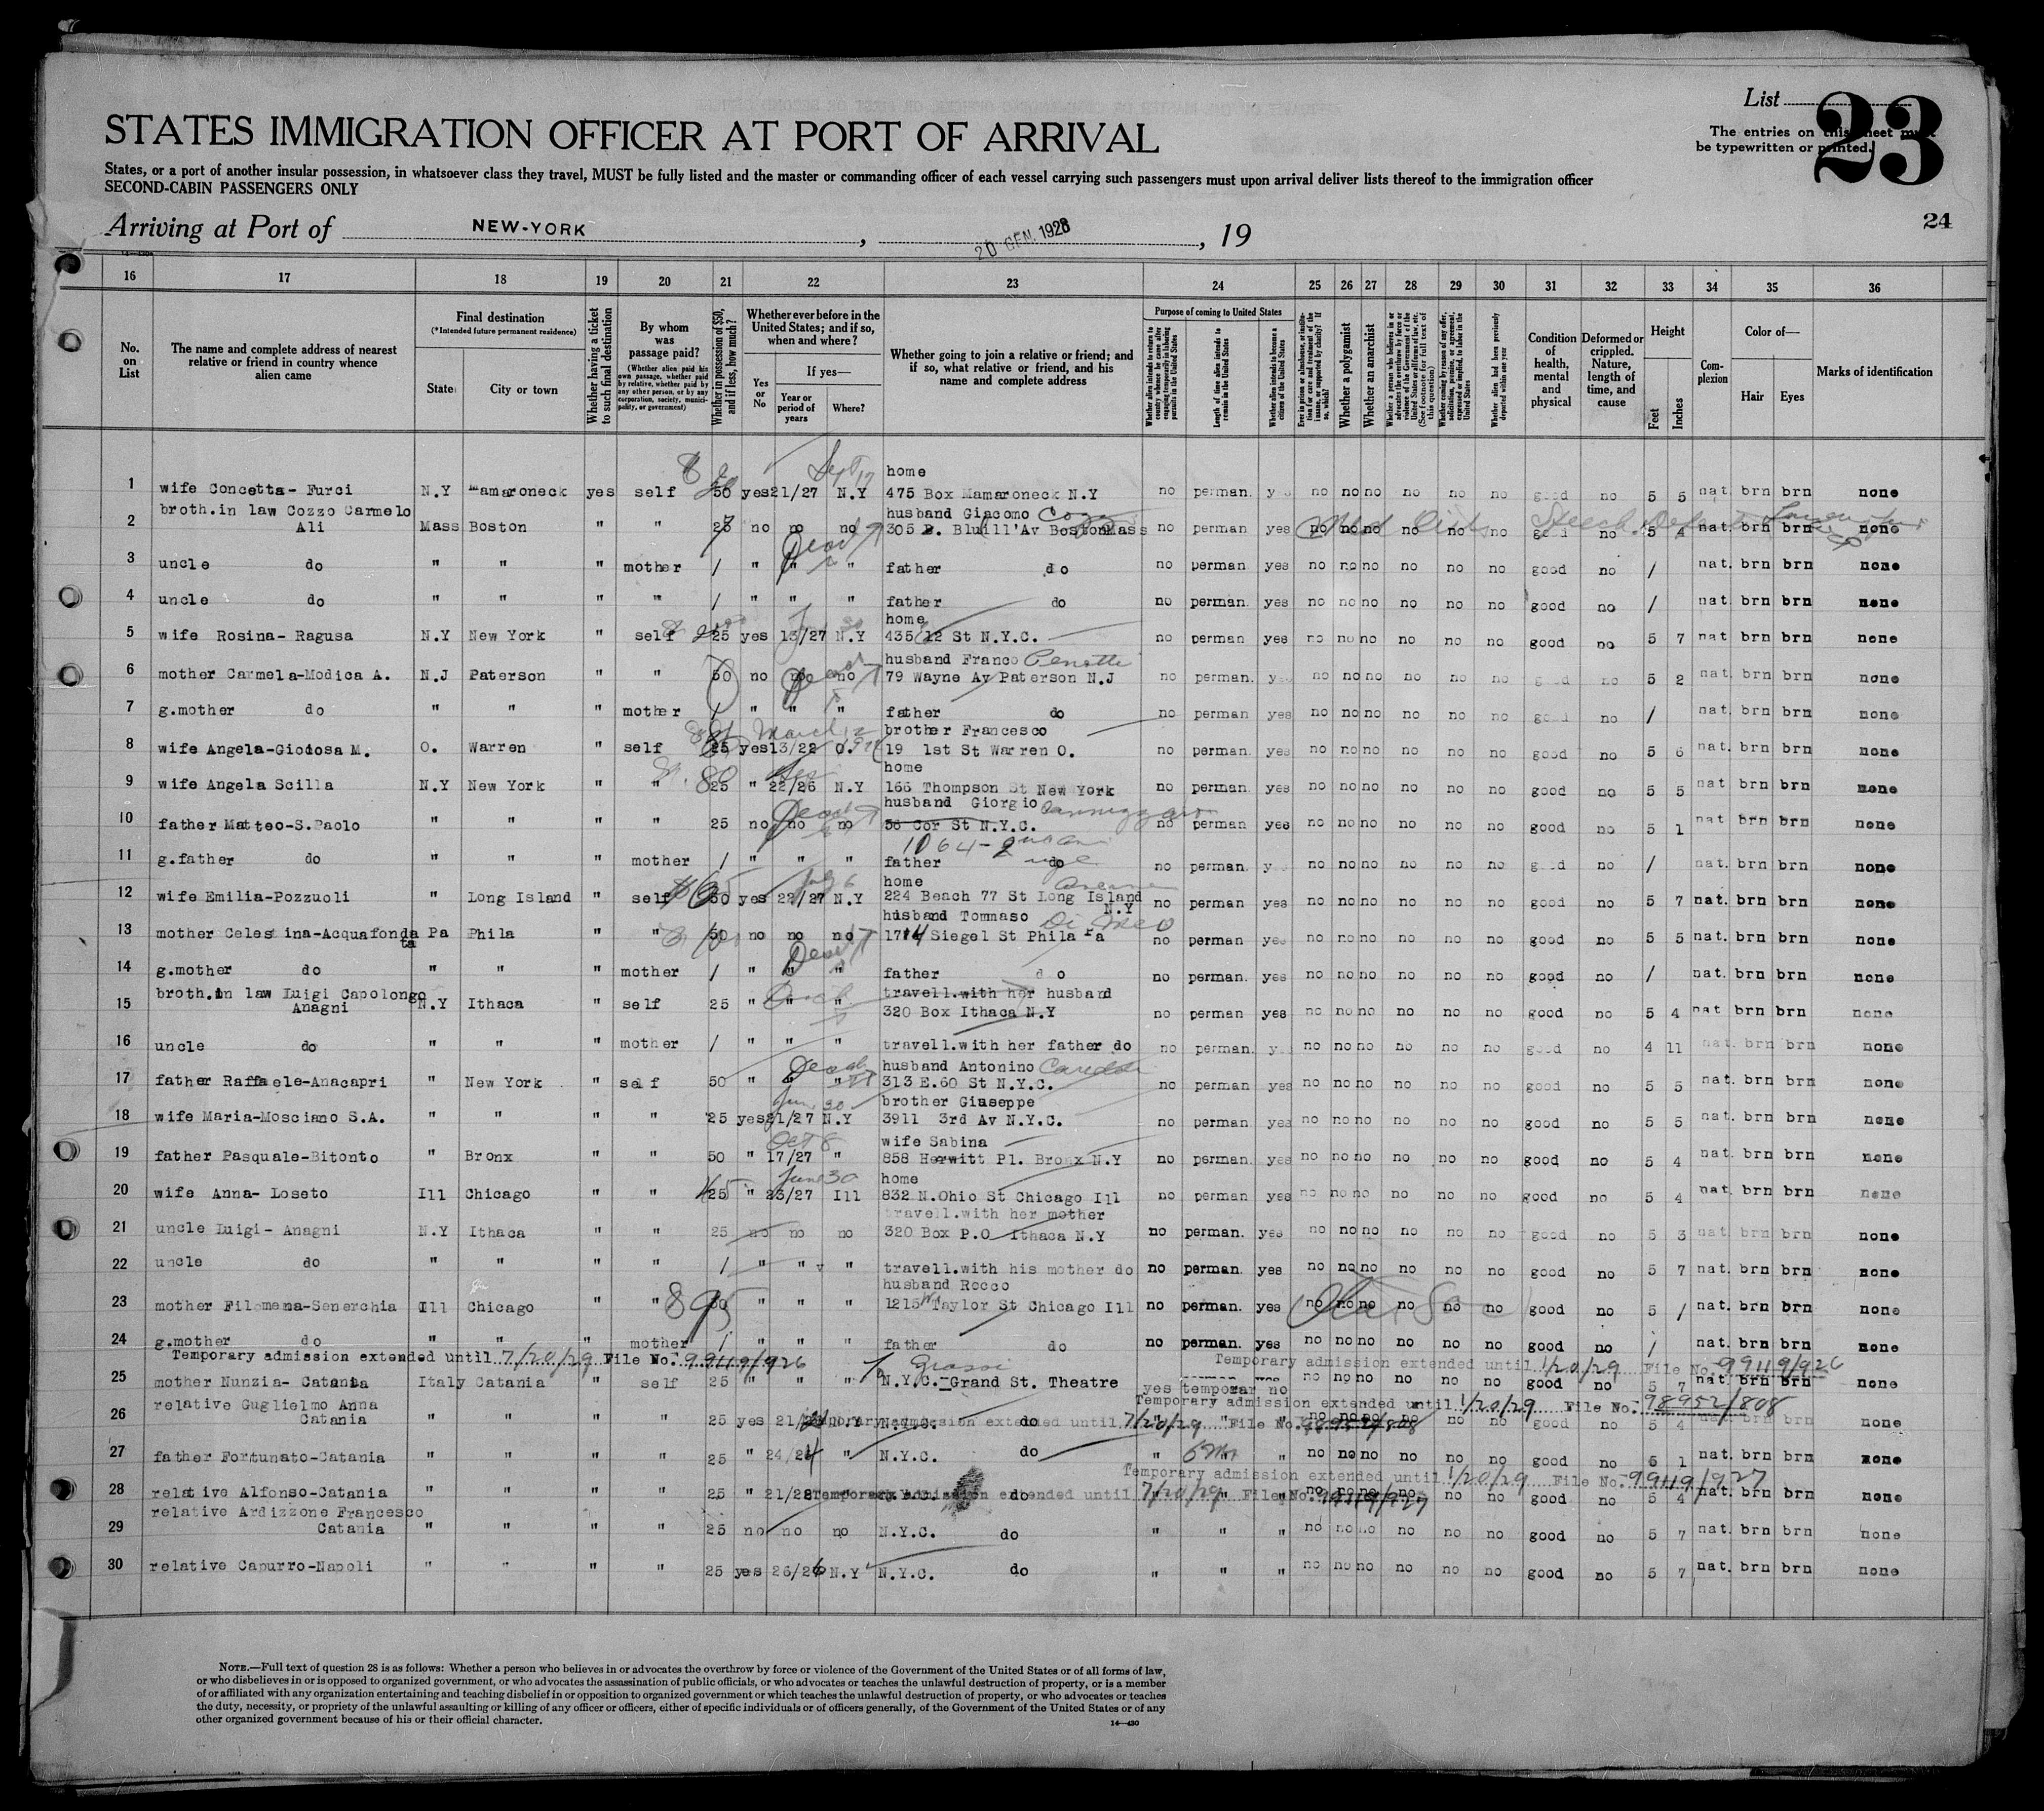 List
23
The entries on this sheet must
be typewritten or printed.
STATES IMMIGRATION OFFICER AT PORT OF ARRIVAL
States, or a port of another insular possession, in whatsoever class they travel, MUST be fully listed and the master or commanding officer of each vessel carrying such passengers must upon arrival deliver lists thereof to the immigration officer
SECOND-CABIN PASSENGERS ONLY
24
Arriving at Port of NEW-YORK, 20 GEN. 1928, 19
16 17 18 19 20 21 22 23 24 25 26 27 28 29 30 31 32 33 34 35 36
No. on List
The name and complete address of nearest relative or friend in country whence alien came
Final destination
(*Intended future permanent residence)
State
City or town
Whether having a ticket to such final destination
By whom was passage paid?
(Whether alien paid his own passage, whether paid by relative, whether paid by any other person, or by any corporation, society, municipality, or government)
Whether in possession of $50, and if less, how much?
Whether ever before in the United States; and if so, when and where?
Yes or No
If yes—
Year or period of years
Where?
Whether going to join a relative or friend; and if so, what relative or friend, and his name and complete address
Purpose of coming to United States
Whether alien intends to return to country whence he came after engaging temporarily in laboring pursuits in the United States
Length of time alien intends to remain in the United States
Whether alien intends to become a citizen of the United States
Whether a polygamist
Whether an anarchist
Whether alien had been previously deported within one year
Condition of health, mental and physical
Deformed or crippled. Nature, length of time, and cause
Height
Feet
Inches
Complexion
Color of—
Hair
Eyes
Marks of identification
1 wife Concetta- Furci N.Y Mamaroneck yes self 50 yes 21/27 N.Y home 475 Box Mamaroneck N.Y no perman. yes no no no no no no good no 5 5 nat. brn brn none
Sept 17
2 broth.in law Cozzo Carmelo Ali Mass Boston " " 25 no no no husband Giacomo 305 B. Bluill'Av Boston Mass no perman yes no no no no no no good no 5 4 nat. brn brn none
3 uncle do " " " mother / " " " father do no perman yes no no no no no no good no / nat. brn brn none
4 uncle do " " " " / " " " father do no perman. yes no no no no no no good no / nat. brn brn none
5 wife Rosina- Ragusa N.Y New York " self 25 yes 13/27 N.Y home 435 12 St N.Y.C. no perman yes no no no no no no good no 5 7 nat brn brn none
6 mother Carmela-Modica A. N.J Paterson " " 50 no no no husband Franco 79 Wayne Av Paterson N.J no perman. yes no no no no no no good no 5 2 nat. brn brn none
7 g.mother do " " " mother / " " " father do no perman yes no no no no no no good no / nat. brn brn none
8 wife Angela-Giodosa M. O. Warren " self 25 yes 13/22 O. brother Francesco 19 1st St Warren O. no perman. yes no no no no no no good no 5 6 nat. brn brn none
March 12
9 wife Angela Scilla N.Y New York " " 25 " 22/26 N.Y home 166 Thompson St New York no perman. yes no no no no no no good no 5 5 nat. brn brn none
10 father Matteo-S.Paolo " " " " 25 no no no husband Giorgio 56 Cor St N.Y.C. no perman yes no no no no no no good no 5 1 nat brn brn none
1064-2
11 g.father do " " " mother / " " " father do no perman. yes no no no no no no good no / nat. brn brn none
12 wife Emilia-Pozzuoli " Long Island " self 50 yes 22/27 N.Y home 224 Beach 77 St Long Island N.Y no perman yes no no no no no no good no 5 7 nat. brn brn none
July 6
13 mother Celestina-Acquafondata Pa Phila " " 50 no no no husband Tommaso Di Meo 1714 Siegel St Phila Pa no perman yes no no no no no no good no 5 5 nat. brn brn none
14 g.mother do " " " mother / " " " father do no perman. yes no no no no no no good no / nat. brn brn none
15 broth.in law Luigi Capolongo Anagni N.Y Ithaca " self 25 " " " travell.with her husband 320 Box Ithaca N.Y no perman yes no no no no no no good no 5 4 nat brn brn none
16 uncle do " " " mother / " " " travell.with her father do no perman. yes no no no no no no good no 4 11 nat. brn brn none
17 father Raffaele-Anacapri " New York " self 50 " " " husband Antonino 313 E.60 St N.Y.C. no perman yes no no no no no no good no 5 5 nat. brn brn none
18 wife Maria-Mosciano S.A. " " " " 25 yes 21/27 N.Y brother Giuseppe 3911 3rd Av N.Y.C. no perman. yes no no no no no no good no 5 5 nat. brn brn none
19 father Pasquale-Bitonto " Bronx " " 50 " 17/27 " wife Sabina 858 Hewitt Pl. Bronx N.Y no perman. yes no no no no no no good no 5 4 nat. brn brn none
Oct 8
20 wife Anna- Loseto Ill Chicago " " 25 " 23/27 Ill home 832 N.Ohio St Chicago Ill no perman yes no no no no no no good no 5 4 nat. brn brn none
June 30
21 uncle Luigi- Anagni N.Y Ithaca " " 25 no no no travell.with her mother 320 Box P.O Ithaca N.Y no perman. yes no no no no no no good no 5 3 nat. brn brn none
22 uncle do " " " " / " " " travell.with his mother do no perman. yes no no no no no no good no 5 7 nat. brn brn none
23 mother Filomena-Senerchia Ill Chicago " " 95 " " " husband Rocco 1215 W. Taylor St Chicago Ill no perman. yes no no no no no no good no 5 / nat. brn brn none
24 g.mother do " " " mother / " " " father do no perman. yes no no no no no no good no / nat. brn brn none
Temporary admission extended until 7/20/29 File No. 99119/926
Temporary admission extended until 1/20/29 File No. 99119/926
25 mother Nunzia- Catania Italy Catania " self 25 " " " N.Y.C. Grand St. Theatre yes temporar no no no no no no no good no 5 7 nat. brn brn none
Temporary admission extended until 1/20/29 File No. 98952/808
26 relative Guglielmo Anna Catania " " " " 25 yes N.Y N.Y.C. do " " " no no no no no no good no 5 4 nat. brn brn none
Temporary admission extended until 7/20/29 File No. 98952/808
27 father Fortunato-Catania " " " " 25 " 24/24 " N.Y.C. do " 6m " no no no no no no good no 5 1 nat. brn brn none
Temporary admission extended until 1/20/29 File No. 99119/927
28 relative Alfonso-Catania " " " " 25 " 21/28 N.Y.C. do " " " no no no no no no good no 5 4 nat. brn brn none
Temporary admission extended until 7/20/29 File No. 99119/927
29 relative Ardizzone Francesco Catania " " " " 25 no no no N.Y.C. do " " " no no no no no no good no 5 7 nat. brn brn none
30 relative Capurro-Napoli " " " " 25 yes 26/26 N.Y N.Y.C. do " " " no no no no no no good no 5 7 nat. brn brn none
NOTE.—Full text of question 28 is as follows: Whether a person who believes in or advocates the overthrow by force or violence of the Government of the United States or of all forms of law,
or who disbelieves in or is opposed to organized government, or who advocates the assassination of public officials, or who advocates or teaches the unlawful destruction of property, or is a member
of or affiliated with any organization entertaining and teaching disbelief in or opposition to organized government or which teaches the unlawful destruction of property, or who advocates or teaches
the duty, necessity, or propriety of the unlawful assaulting or killing of any officer or officers, either of specific individuals or of officers generally, of the Government of the United States or of any
other organized government because of his or their official character.
14—430